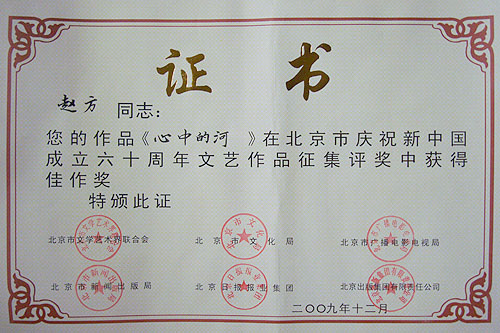 证书
赵方 同志：
您的作品《心中的河 》在北京市庆祝新中国
成立六十周年文艺作品征集评奖中获得
佳作奖
特颁此证
北京市文学艺术界联合会 北京市文化局 北京市广播电影电视局
北京市新闻出版局 北京日报报业集团 北京出版集团有限责任公司
二〇〇九年十二月